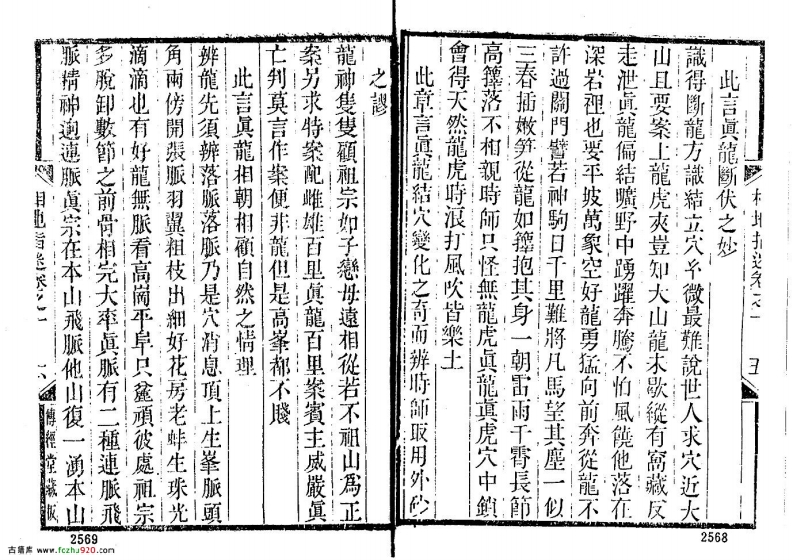 相地指迷卷之一 五
此言眞龍斷伏之妙
識得斷龍方識結立穴幺微最難說世人求穴近大
山且要案上龍虎夾豈知大山龍未歇縱有窩藏反
走泄眞龍偏結曠野中踴躍奔騰不怕風饒他落在
深岩裡也要平坡萬象空好龍勇猛向前奔從龍不
許過關門譬若神駒日千里難將凡馬望其塵一似
三春插嫩笋從龍如籜抱其身一朝雷雨干霄長節
高籜落不相親時師只怪無龍虎眞龍眞虎穴中鎖
會得天然龍虎時浪打風吹皆樂土
此章言眞龍結穴變化之奇而辨時師取用外砂
2568
之謬
龍神隻隻顧祖宗如子戀母遠相從若不祖山爲正
案另求特案配雌雄百里眞龍百里案賓主威嚴眞
亡判莫言作案便非龍但是高峯都不賤
此言眞龍相朝相顧自然之情理
辨龍先須辨落脈落脈乃是穴消息頂上生峯脈頭
角兩傍開張脈羽翼粗枝出細好花房老蚌生珠光
滴滴也有好龍無脈看高崗平阜只盤頑彼處祖宗
多脫卸數節之前骨相完大率眞脈有二種連脈飛
脈精神迥連脈眞宗在本山飛脈他山復一湧本山
相地指迷卷之一 六 傳經堂藏版
2569
古籍库 www.fczhu920.com